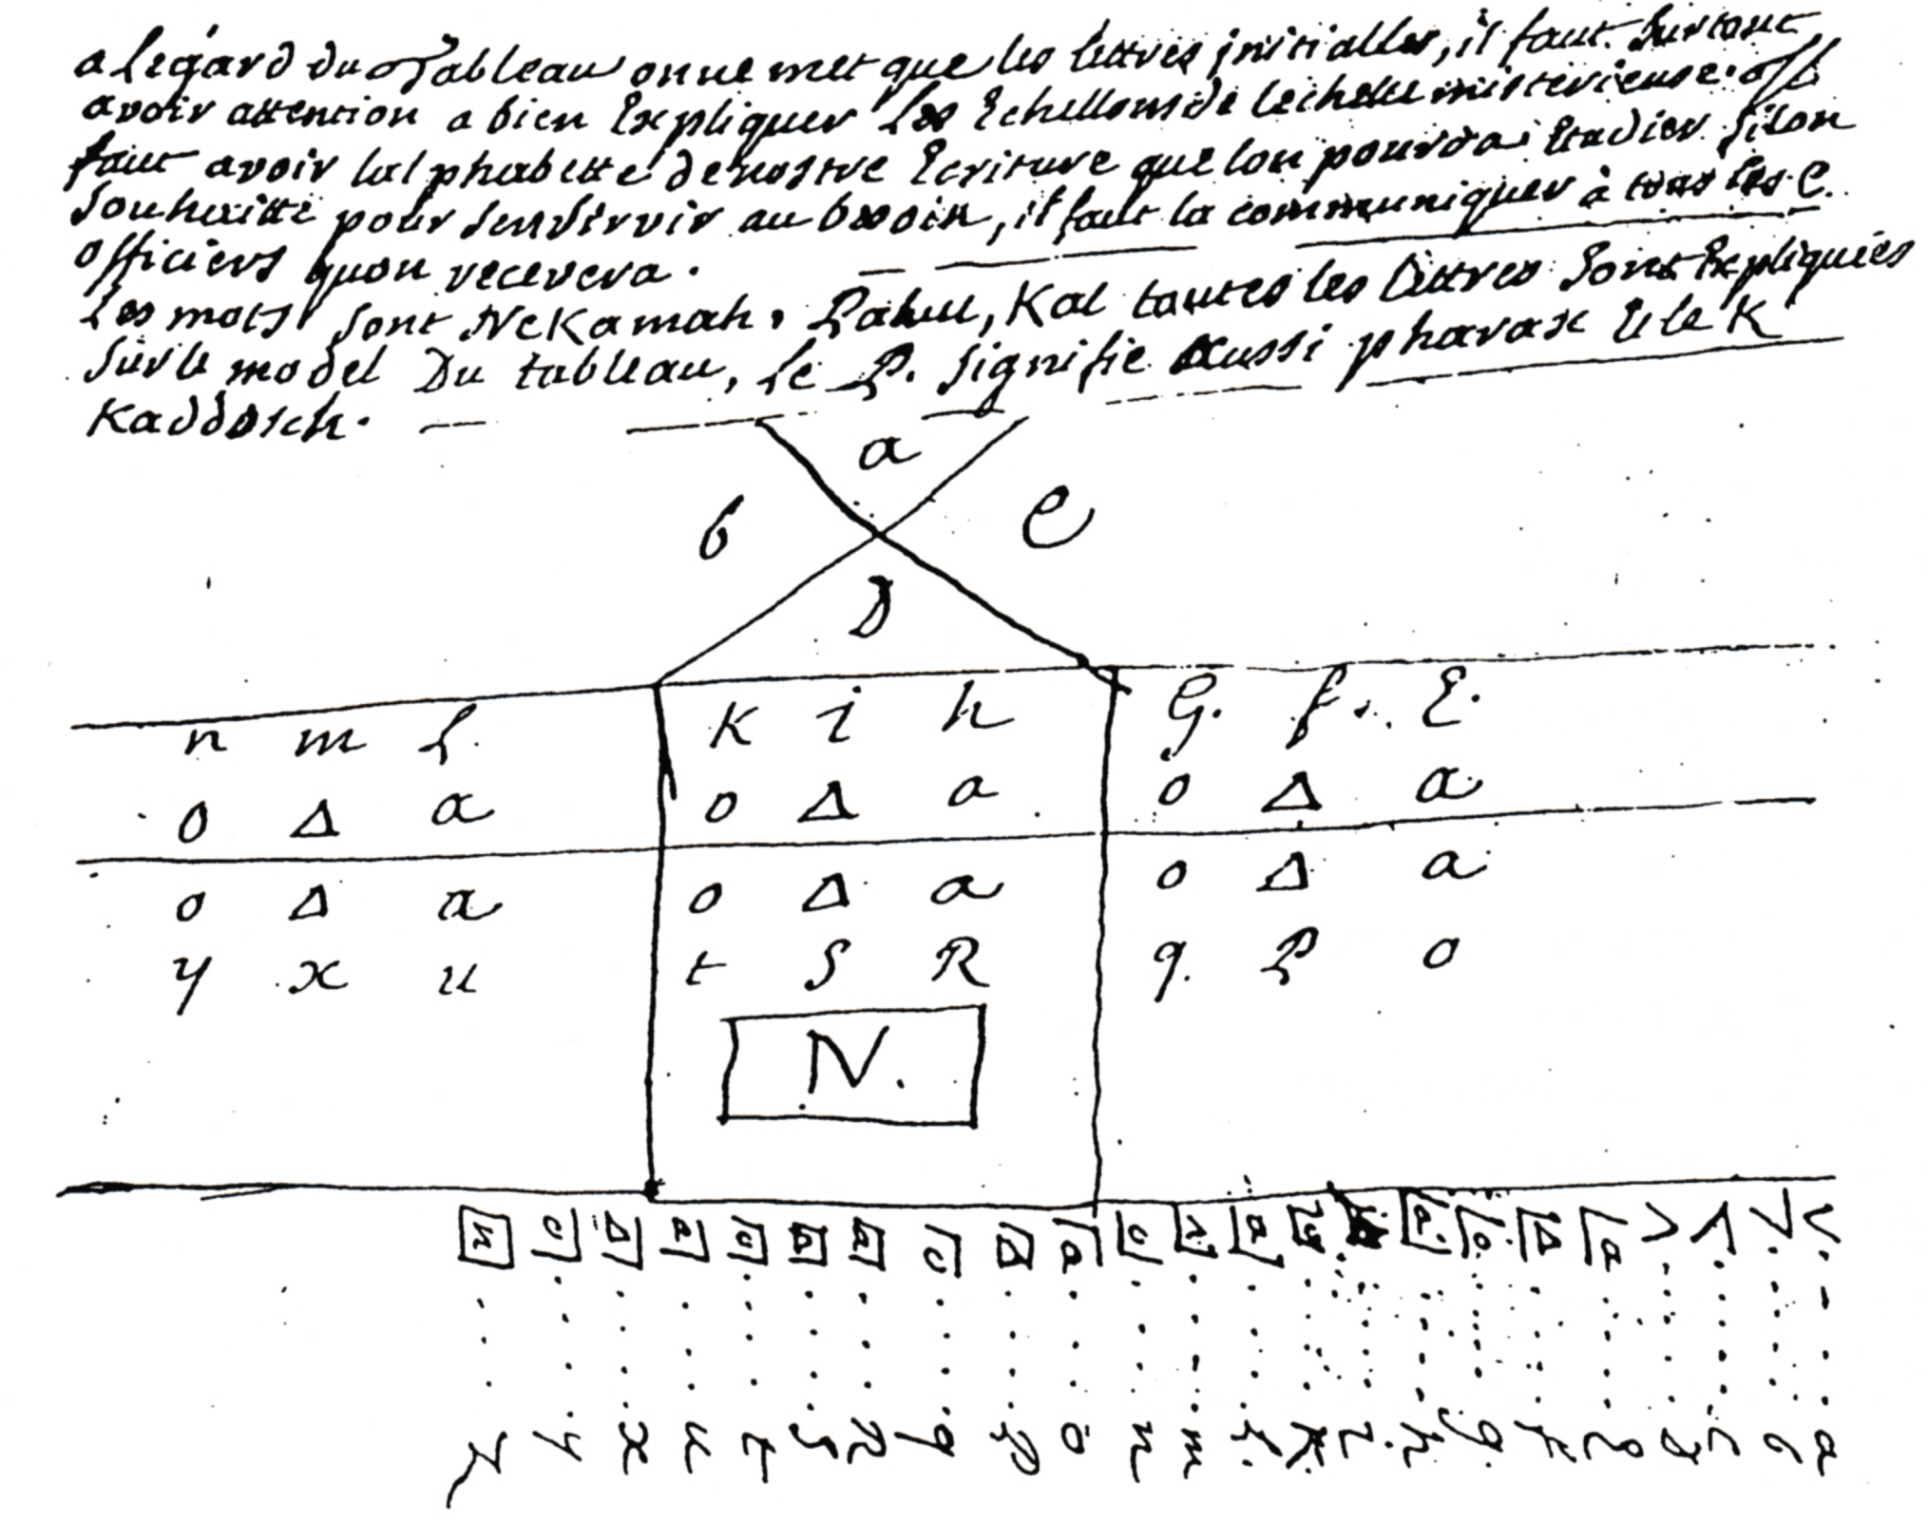 a Légard du Tableau on ne met que les lettres initialles, il faut surtout
avoir attention a bien Expliquer les Echellons de léchelle misterieuse. Il
faut avoir lalphabette de nostre Ecriture que lon pourra Etudier silon
souhaitte pour sen servir au besoin, il faut la communiquer à tous les C.
officiers quon recevera.
Les mots sont NeKamah, Kal toutes les lettres sont Expliquées
sur le model Du tableau, Le P. signifie aussi pharax Et le K
Kaddosch.
a
b C
D
n m L. K i h G. f. E.
o Δ a o Δ a o Δ a
o Δ a o Δ a o Δ a
y x u t S R q. P o
N.